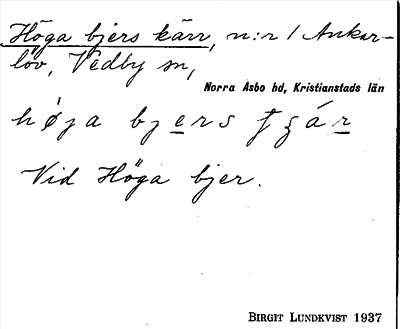 Höga bjers kärr, n:r 1 Ankar-
löv, Vedby sn,
Norra Åsbo hd, Kristianstads län
Vid Höga bjer.
BIRGIT LUNDKVIST 1937